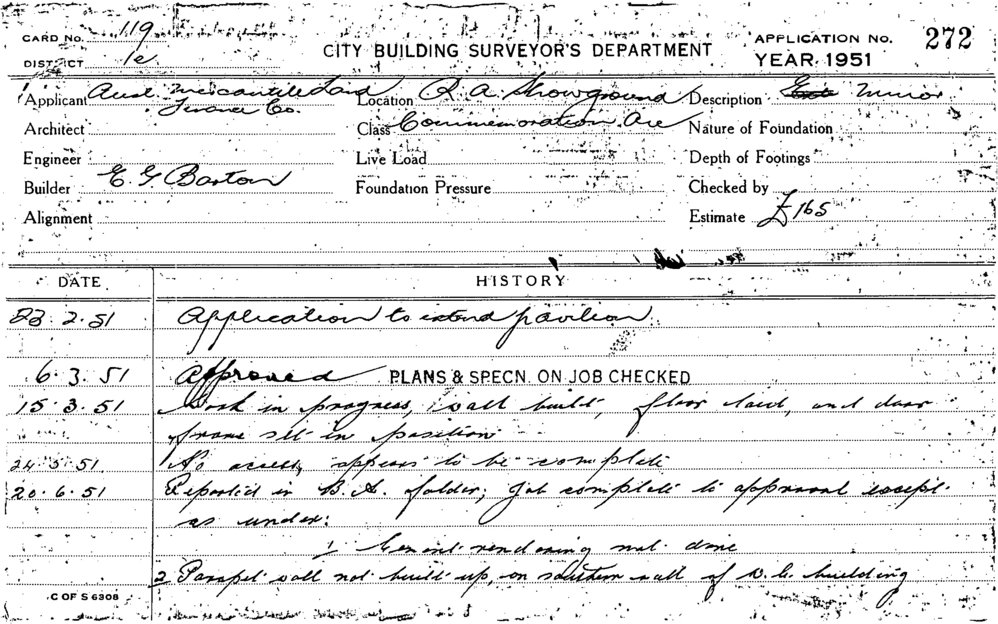 CARD NO. 119
DISTRICT 1e
CITY BUILDING SURVEYOR'S DEPARTMENT
APPLICATION NO. 272
YEAR 1951
Applicant Aust. Mercantile Land
Finance Co.
Location R. A. Showground
Description Minor
Architect
Class Commemoration Ave
Nature of Foundation
Engineer
Live Load
Depth of Footings
Builder E. G. Barton
Foundation Pressure
Checked by
Alignment
Estimate £165
DATE HISTORY
23.2.51 Application to extend pavilion
6.3.51 Approved PLANS & SPECN. ON JOB CHECKED
15.3.51 Work in progress, wall built, floor laid, and door
frame set in position
24.5.51 No access, appears to be complete
20.6.51 Reported in B.A. folder; job complete to approval except
as under:
1 Cement rendering not done
2 Parapet wall not built up, on southern wall of W.C. building
C OF S 6308